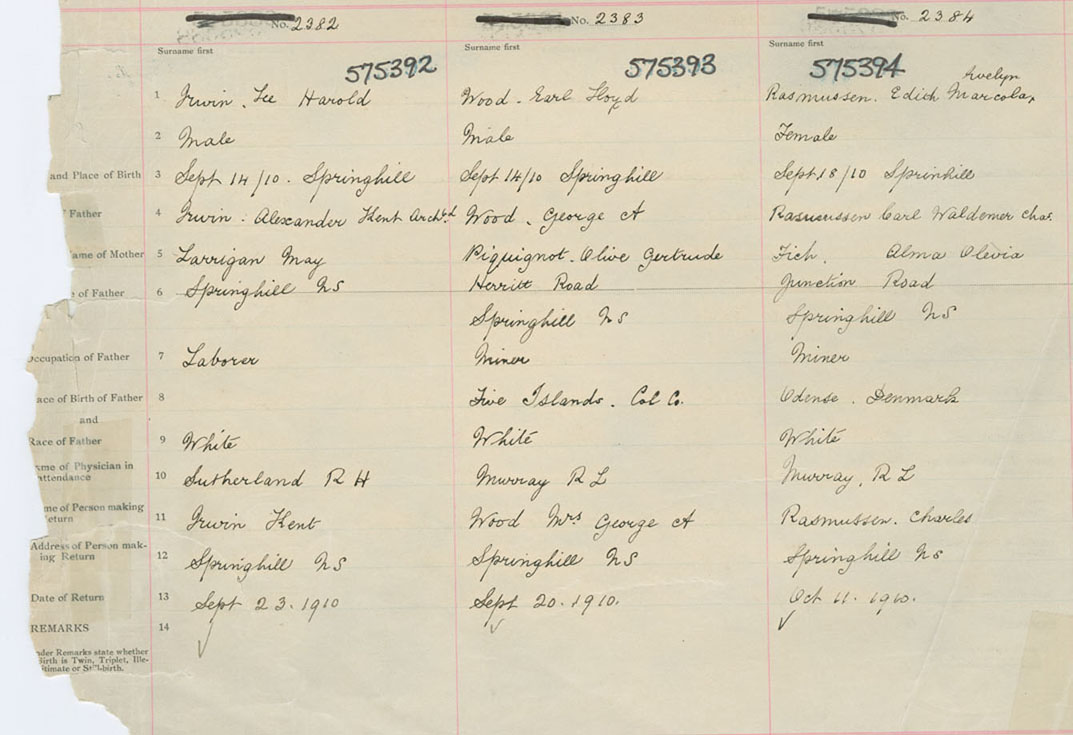 No. 2382 No. 2383 No. 2384
Surname first Surname first Surname first
575392 575393 575394
Avelyn
1 Irwin. Lee Harold Wood. Earl Lloyd Rasmussen. Edith Marcola
2 Male Male Female
and Place of Birth 3 Sept 14/10. Springhill Sept 14/10 Springhill Sept 18/10 Sprinhill
Father 4 Irwin: Alexander Kent Archbd Wood. George A Rasmussen Carl Waldemer Chas.
ame of Mother 5 Larrigan May Piquignot. Olive Gertrude Fich. Alma Olevia
of Father 6 Springhill NS Herritt Road Junction Road
Springhill NS Springhill NS
Occupation of Father 7 Laborer Miner Miner
ace of Birth of Father 8 Five Islands. Col Co. Odense. Denmark
and
Race of Father 9 White White White
me of Physician in
attendance 10 Sutherland R H Murray R L Murray, R L
me of Person making
eturn 11 Irwin Kent Wood Mrs George A Rasmussen. Charles
Address of Person mak-
ing Return 12 Springhill NS Springhill NS Springhill NS
Date of Return 13 Sept 23. 1910 Sept 20. 1910. Oct 11. 1910.
REMARKS 14
nder Remarks state whether
Birth is Twin, Triplet, Ille-
gitimate or Still-birth.